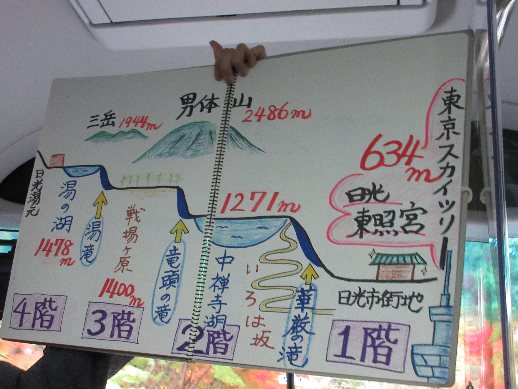 三岳 1944m
男体山
2486m
634m
東京スカイツリー
日光
東照宮
日光湯元
湯の湖
1478m
湯滝
戦場ヶ原
1400m
竜頭の滝
1271m
中禅寺湖
いろは坂
華厳の滝
日光市街地
4階
3階
2階
1階